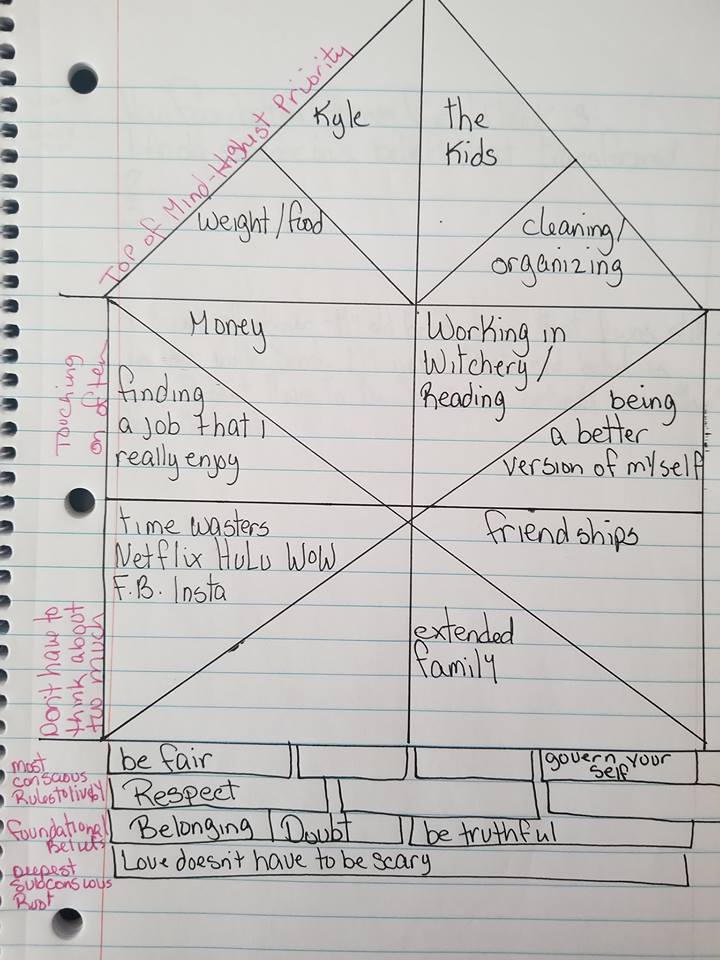 Top of Mind-Highest Priority
Kyle
the
Kids
weight/food
cleaning/
organizing
Touching
on often
Money
finding
a job that i
really enjoy
Working in
Witchery/
Reading
being
a better
version of myself
Don't have to
think about
two much
time wasters
Netflix Hulu WoW
F.B. Insta
friendships
extended
family
most
conscious
Rules to live by
be fair
govern your
self
Respect
Foundational
Beliefs
Belonging
Doubt
be truthful
Deepest
Subconscious
Root
Love doesn't have to be scary